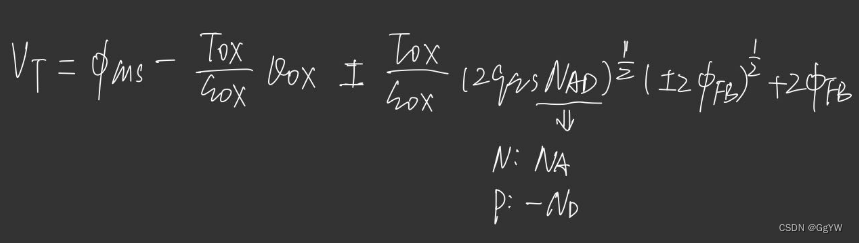 V_T = φ_ms - T_ox/ε_ox Q_ox ± T_ox/ε_ox (2qε_s N_AD)^{1/2} (±2φ_FB)^{1/2} + 2φ_FB
⇓
N: N_A
P: -N_D
CSDN @GgYW